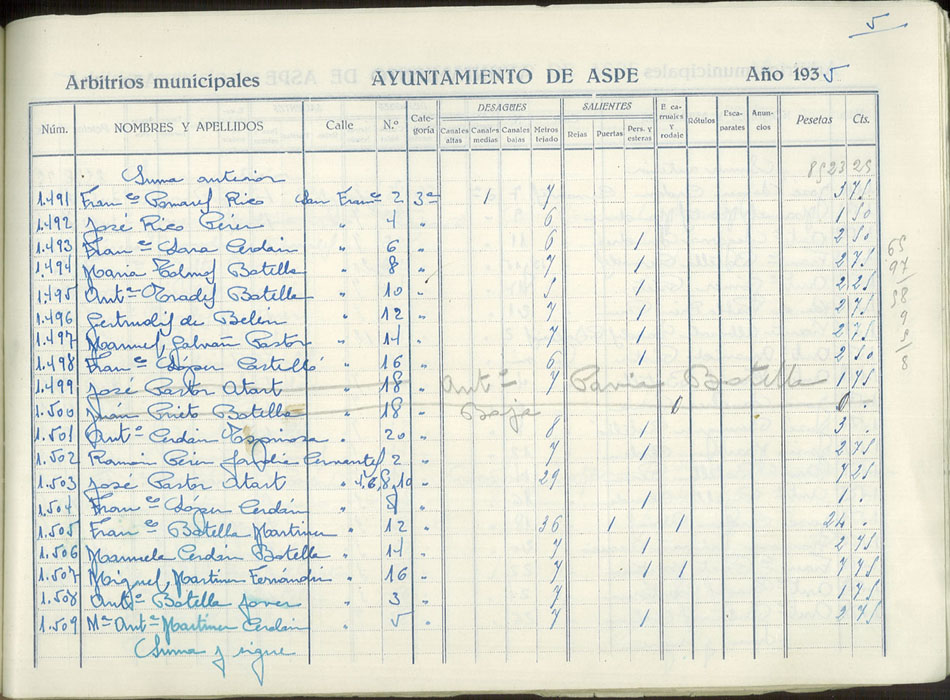 5
Arbitrios municipales AYUNTAMIENTO DE ASPE Año 1935
Núm. NOMBRES Y APELLIDOS Calle N.º Categoría DESAGUES Canales altas Canales medias Canales bajas Metros tejado SALIENTES Rejas Puertas Pers. y esteras E carruajes y rodaje Rótulos Escaparates Anuncios Pesetas Cts.
Suma anterior 8523 25
1.491 Fran.co Rico San Fran.co 2 3ª 1 7 3 75
1.492 José Rico Pérez " 4 " 6 1 50
1.493 Fran.co Lara Cerdán " 6 " 6 1 2 50
1.494 Maria Botella " 8 " 7 1 2 75
1.495 Ant.º Botella " 10 " 5 1 2 25
1.496 Gertrudis de Belén " 12 " 7 1 2 75
1.497 Manuel Galván Pastor " 14 " 7 1 2 75
1.498 Fran.co López Castelló " 16 " 6 1 2 50
1.499 José Pastor Atart " 18 " Ant.º 7 Pavía Botella 1 75
1.500 Juán Prieto Botella " 18 " Baja 0 .
1.501 Ant.º Cerdán Espinosa " 20 " 8 1 3
1.502 Ramón Pérez Cervantes 2 " 7 1 2 75
1.503 José Pastor Atart " 4,6,8,10 " 29 7 25
1.504 Fran.co López Cerdán " " 1 1 .
1.505 Fran.co Botella Martinez " 12 " 36 1 1 24 .
1.506 Manuela Cerdán Botella " 14 " 7 1 2 75
1.507 Miguel Martinez Fernández " 16 " 7 1 1 7 75
1.508 Ant.º Botella Jover " 3 " 7 1 75
1.509 Mª Ant.ª Martinez Cerdán " 5 " 7 1 2 75
Suma y sigue
65
97
38
9
5
8